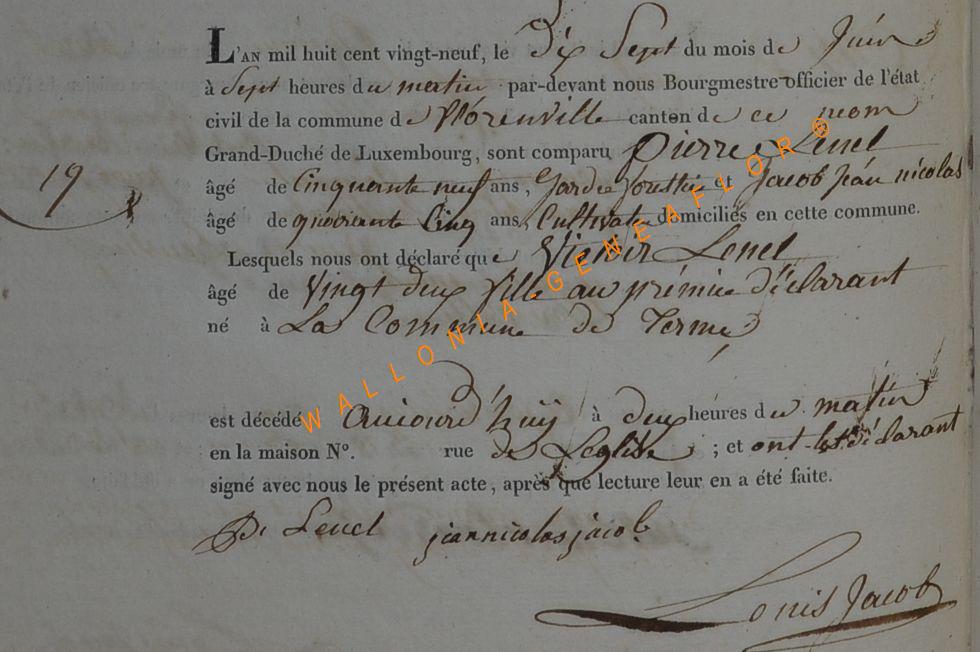 L'AN mil huit cent vingt-neuf, le Dix Sept du mois de Juin
à Sept heures du matin par-devant nous Bourgmestre officier de l'état
civil de la commune de canton de ce nom
Grand-Duché de Luxembourg, sont comparu Pierre Lenel
19
âgé de Cinquante neuf ans, Garde forestier et Jacob jean nicolas
âgé de quarante Cinq ans, Cultivateur domiciliés en cette commune.
Lesquels nous ont déclaré que Lenel
âgé de Vingt deux fille au prémier déclarant
né à La Commune de Termes
est décédé aujourd'huy à deux heures du matin
en la maison N°. rue de Leglise ; et ont les déclarant
signé avec nous le présent acte, après que lecture leur en a été faite.
P. Lenel jeannicolas jacob
Louis Jacob
WALLONIA-GENEAFLOR®